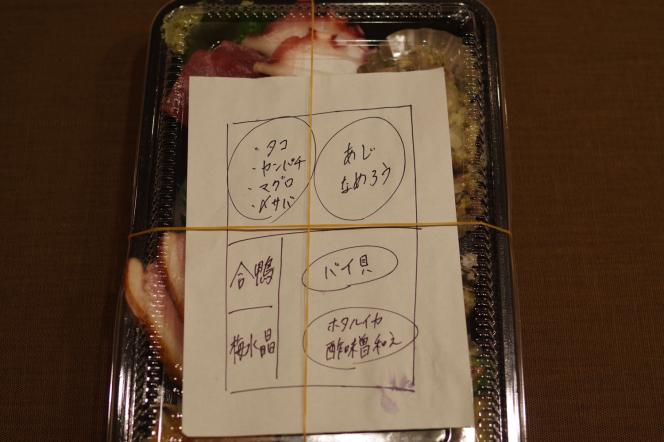 ・タコ
・カンパチ
・マグロ
・〆サバ
あじ
なめろう
合鴨
バイ貝
梅水晶
ホタルイカ
酢味噌和え